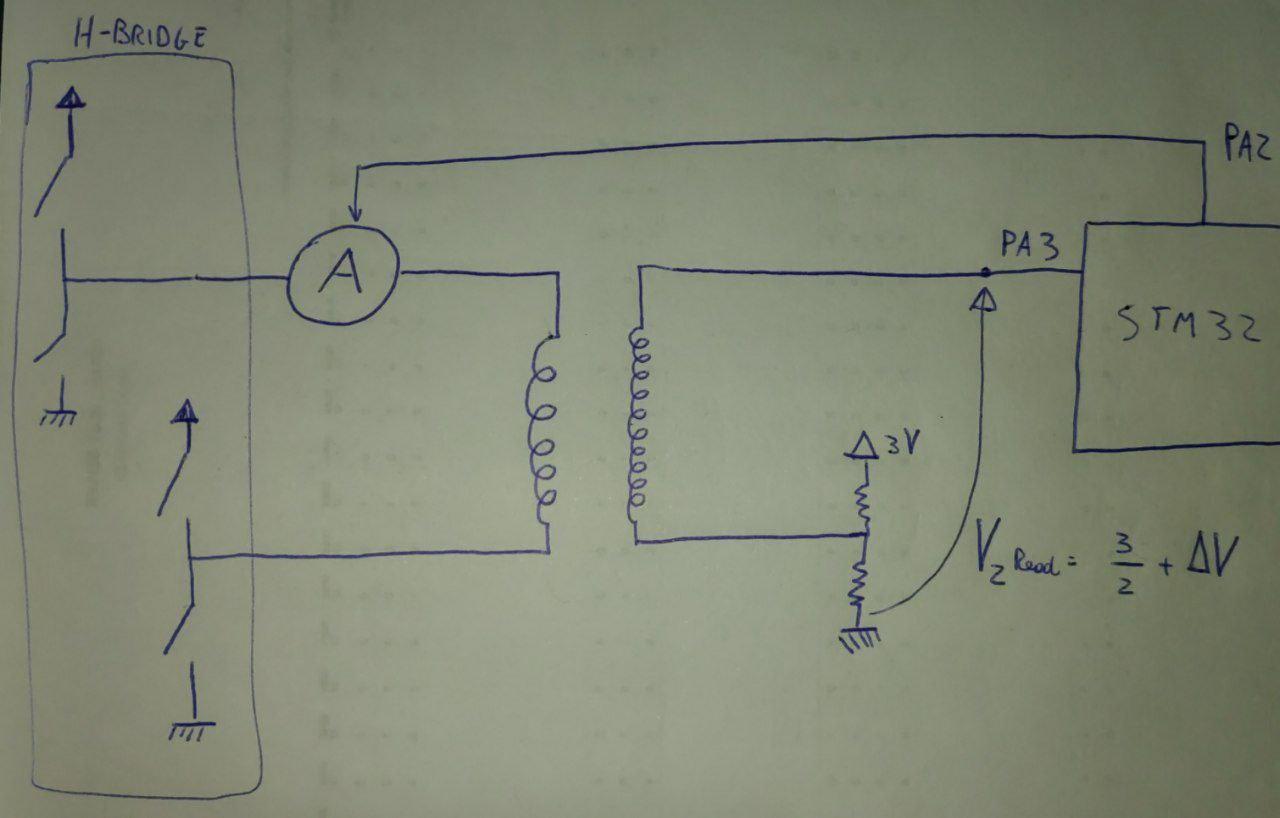 H-BRIDGE
PA2
A
PA3
STM32
3V
V2 Read = 3/2 + ΔV